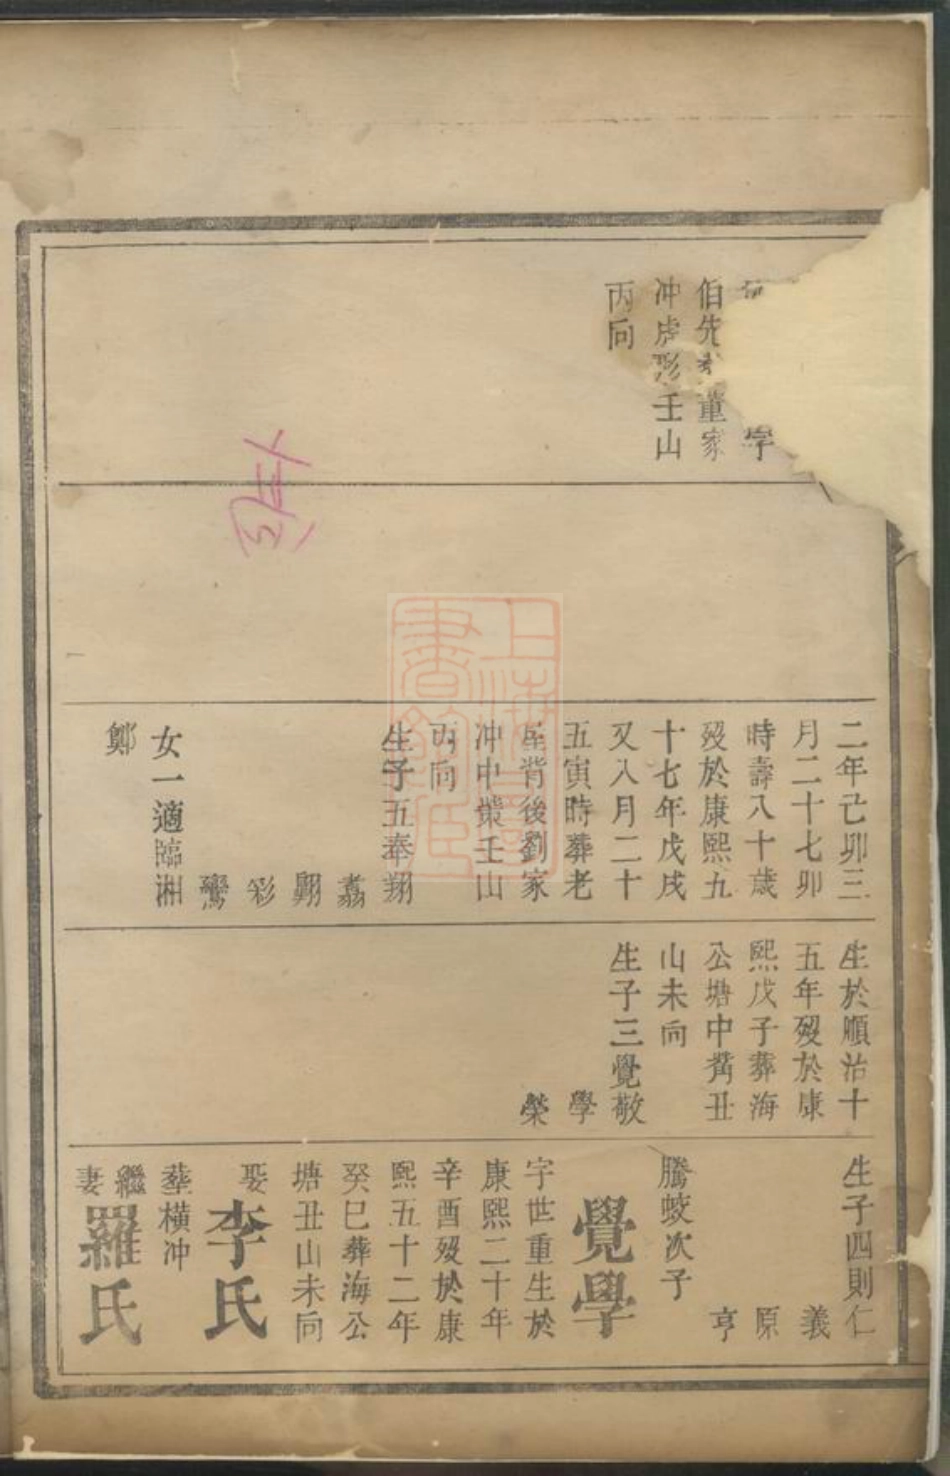 伯先
董家
冲虎形壬山
丙向
二年己卯三
月二十七卯
時壽八十歲
歿於康熙五
十七年戊戌
又八月二十
五寅時葬老
屋背後劉家
冲中壬山
丙向
生子五奉翔
翥
翾
彩
鸞
女一適臨湘
鄭
生於順治十
五年歿於康
熙戊子葬海
公塘中丑
山未向
生子三覺敬
學
榮
生子四則仁
義
原
亨
騰蛟次子
覺學
字世重生於
康熙二十年
辛酉歿於康
熙五十二年
癸巳葬海公
塘丑山未向
娶李氏
葬横冲
繼妻羅氏
上海圖書館藏